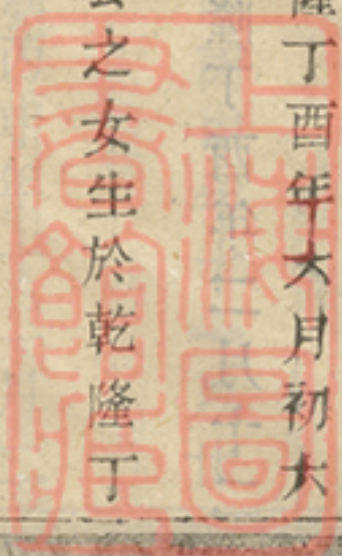 隆丁酉年六月初六
之女生於乾隆丁
上海圖書館藏